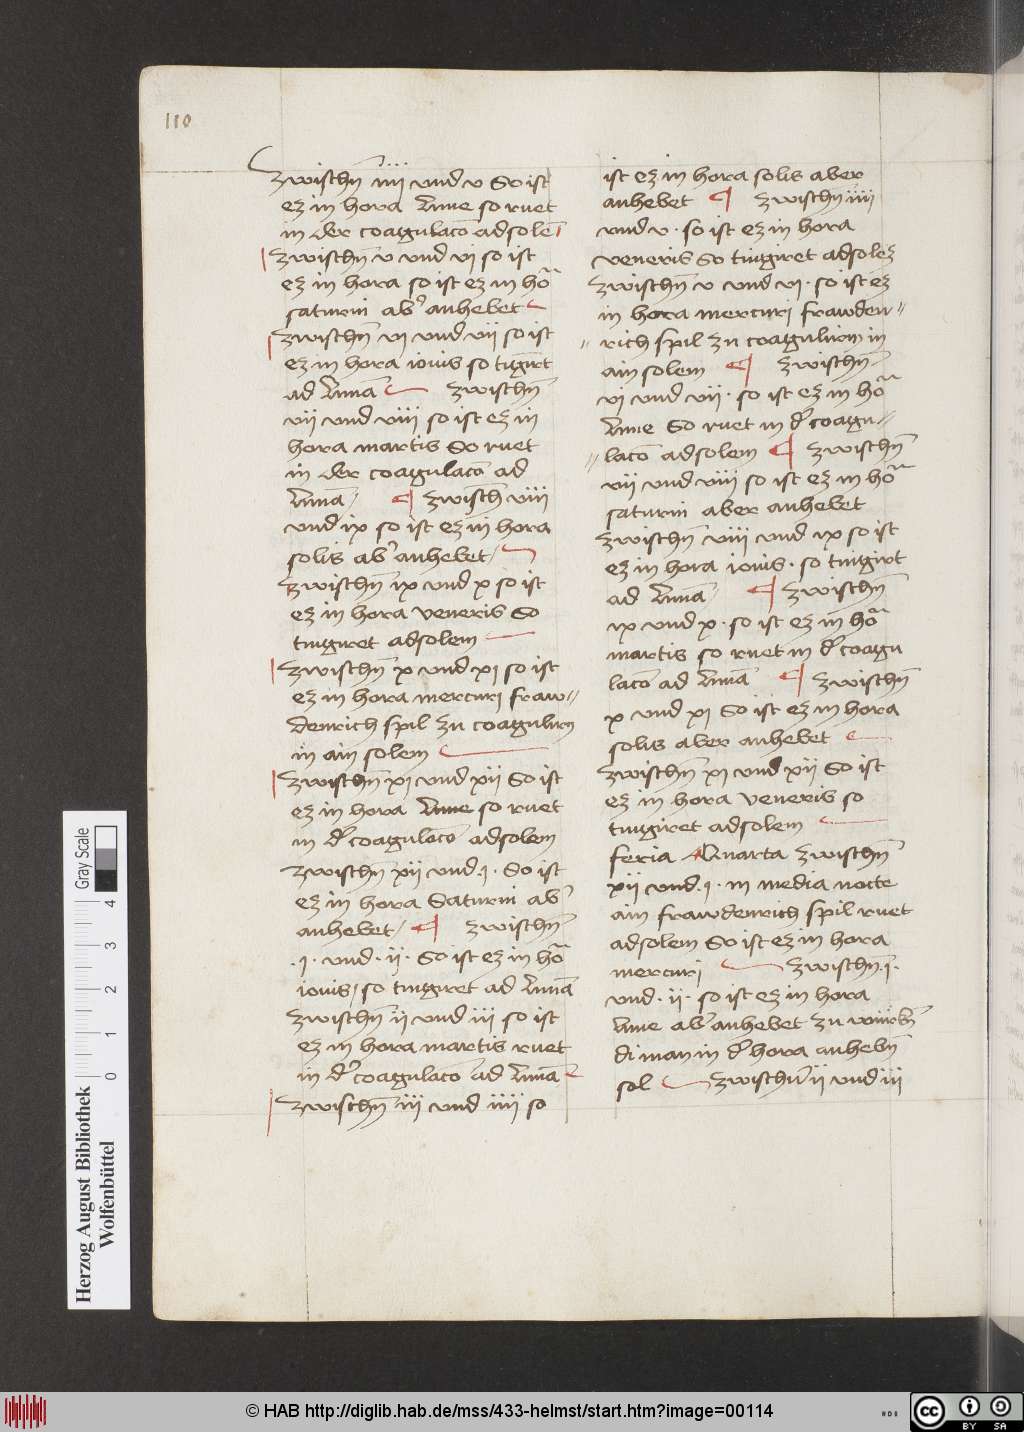 110
Zwischn̄ iiii vnd v So ist
ez in hora Lune so ruet
in der coagulacō ad solē
Zwischn̄ v vnd vi so ist
ez in hora so ist ez in hōa
saturni ab' anhebet
Zwischn̄ vi vnd vii so ist
ez in hora iovis so tīgirt
ad Lunā zwischn̄
vii vnd viii so ist ez in
hora martis So ruet
in der coagulacō ad
Luna ¶ zwischn̄ viii
vnd ix so ist ez in hora
solis ab' anhebet
Zwischn̄ ix vnd x so ist
ez in hora veneris So
tingiret ad solem
Zwischn̄ x vnd xi so ist
ez in hora mercuri fraw//
denrich spil zu coagulirn
in ain solem
Zwischn̄ xi vnd xii So ist
ez in hora Lune so ruet
in d' coagulacō ad solem
zwischn̄ xii vnd ·i· So ist
ez in hora Saturni ab'
anhebet ¶ zwischn̄
·i· vnd ·ii· So ist ez in hōa
iouis / so tingiret ad Lunā
Zwischn̄ ii vnd iii so ist
ez in hora martis ruet
in d' coagulaco ad Lunā
Zwischn̄ iii vnd iiii so
ist ez in hora solis aber
anhebet ¶ zwischn̄ iiii
vnd v · so ist ez in hora
veneris So tingiret ad solez
Zwischn̄ v vnd vi · so ist ez
in hora mercuri frawden//
// rich spil zu coagulirn in
ain solem ¶ zwischn̄
vi vnd vii · so ist ez in hōa
Lune So ruet in d' coagu//
// lacō ad solem ¶ zwischn̄
vii vnd viii so ist ez in hōa
saturni aber anhebet
Zwischn̄ viii vnd ix so ist
ez in hora iouis · so tingirt
ad Lunā ¶ zwischn̄
ix vnd x · so ist ez in hōa
martis so ruet in d' coagu
lacō ad Lunā ¶ zwischn̄
x vnd xi So ist ez in hora
solis aber anhebet
Zwischn̄ xi vnd xii So ist
ez in hora veneris so
tingiret ad solem
feria Quarta zwischn̄
xii vnd ·i· in media nocte
ain frawdenrich spil ruet
ad solem So ist ez in hora
mercuri zwischn̄ ·i·
vnd · ii · so ist ez in hora
Lune ab' anhebet zu
di man in d' hora anhebn̄
sol zwischn̄ ii vnd iii
Herzog August Bibliothek
Wolfenbüttel
Gray Scale
0 1 2 3 4
© HAB http://diglib.hab.de/mss/433-helmst/start.htm?image=00114
HAB
cc BY SA